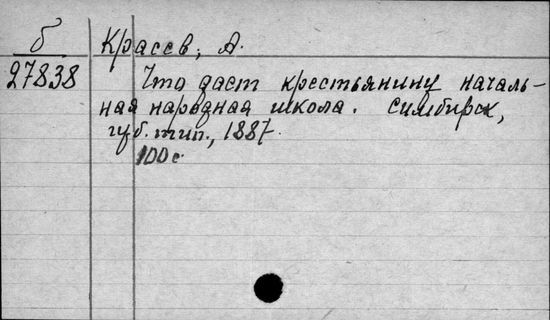 б Красев, А.
27838 Что даст крестьянину началь-
ная народная школа. Симбирск,
губ. тип., 1887.
100 с.